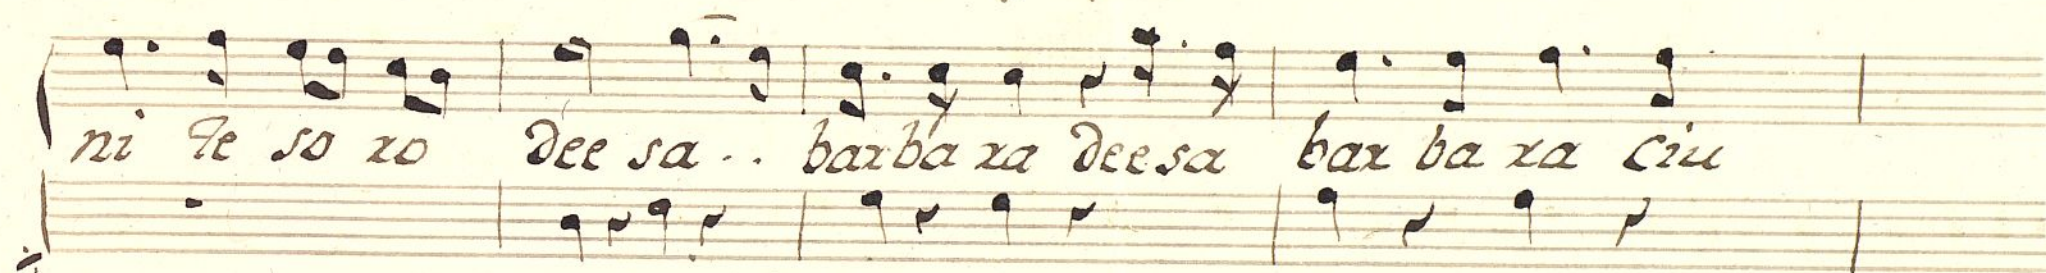 ni te so ro dee sa.. barbara deesa bar ba ra ciu